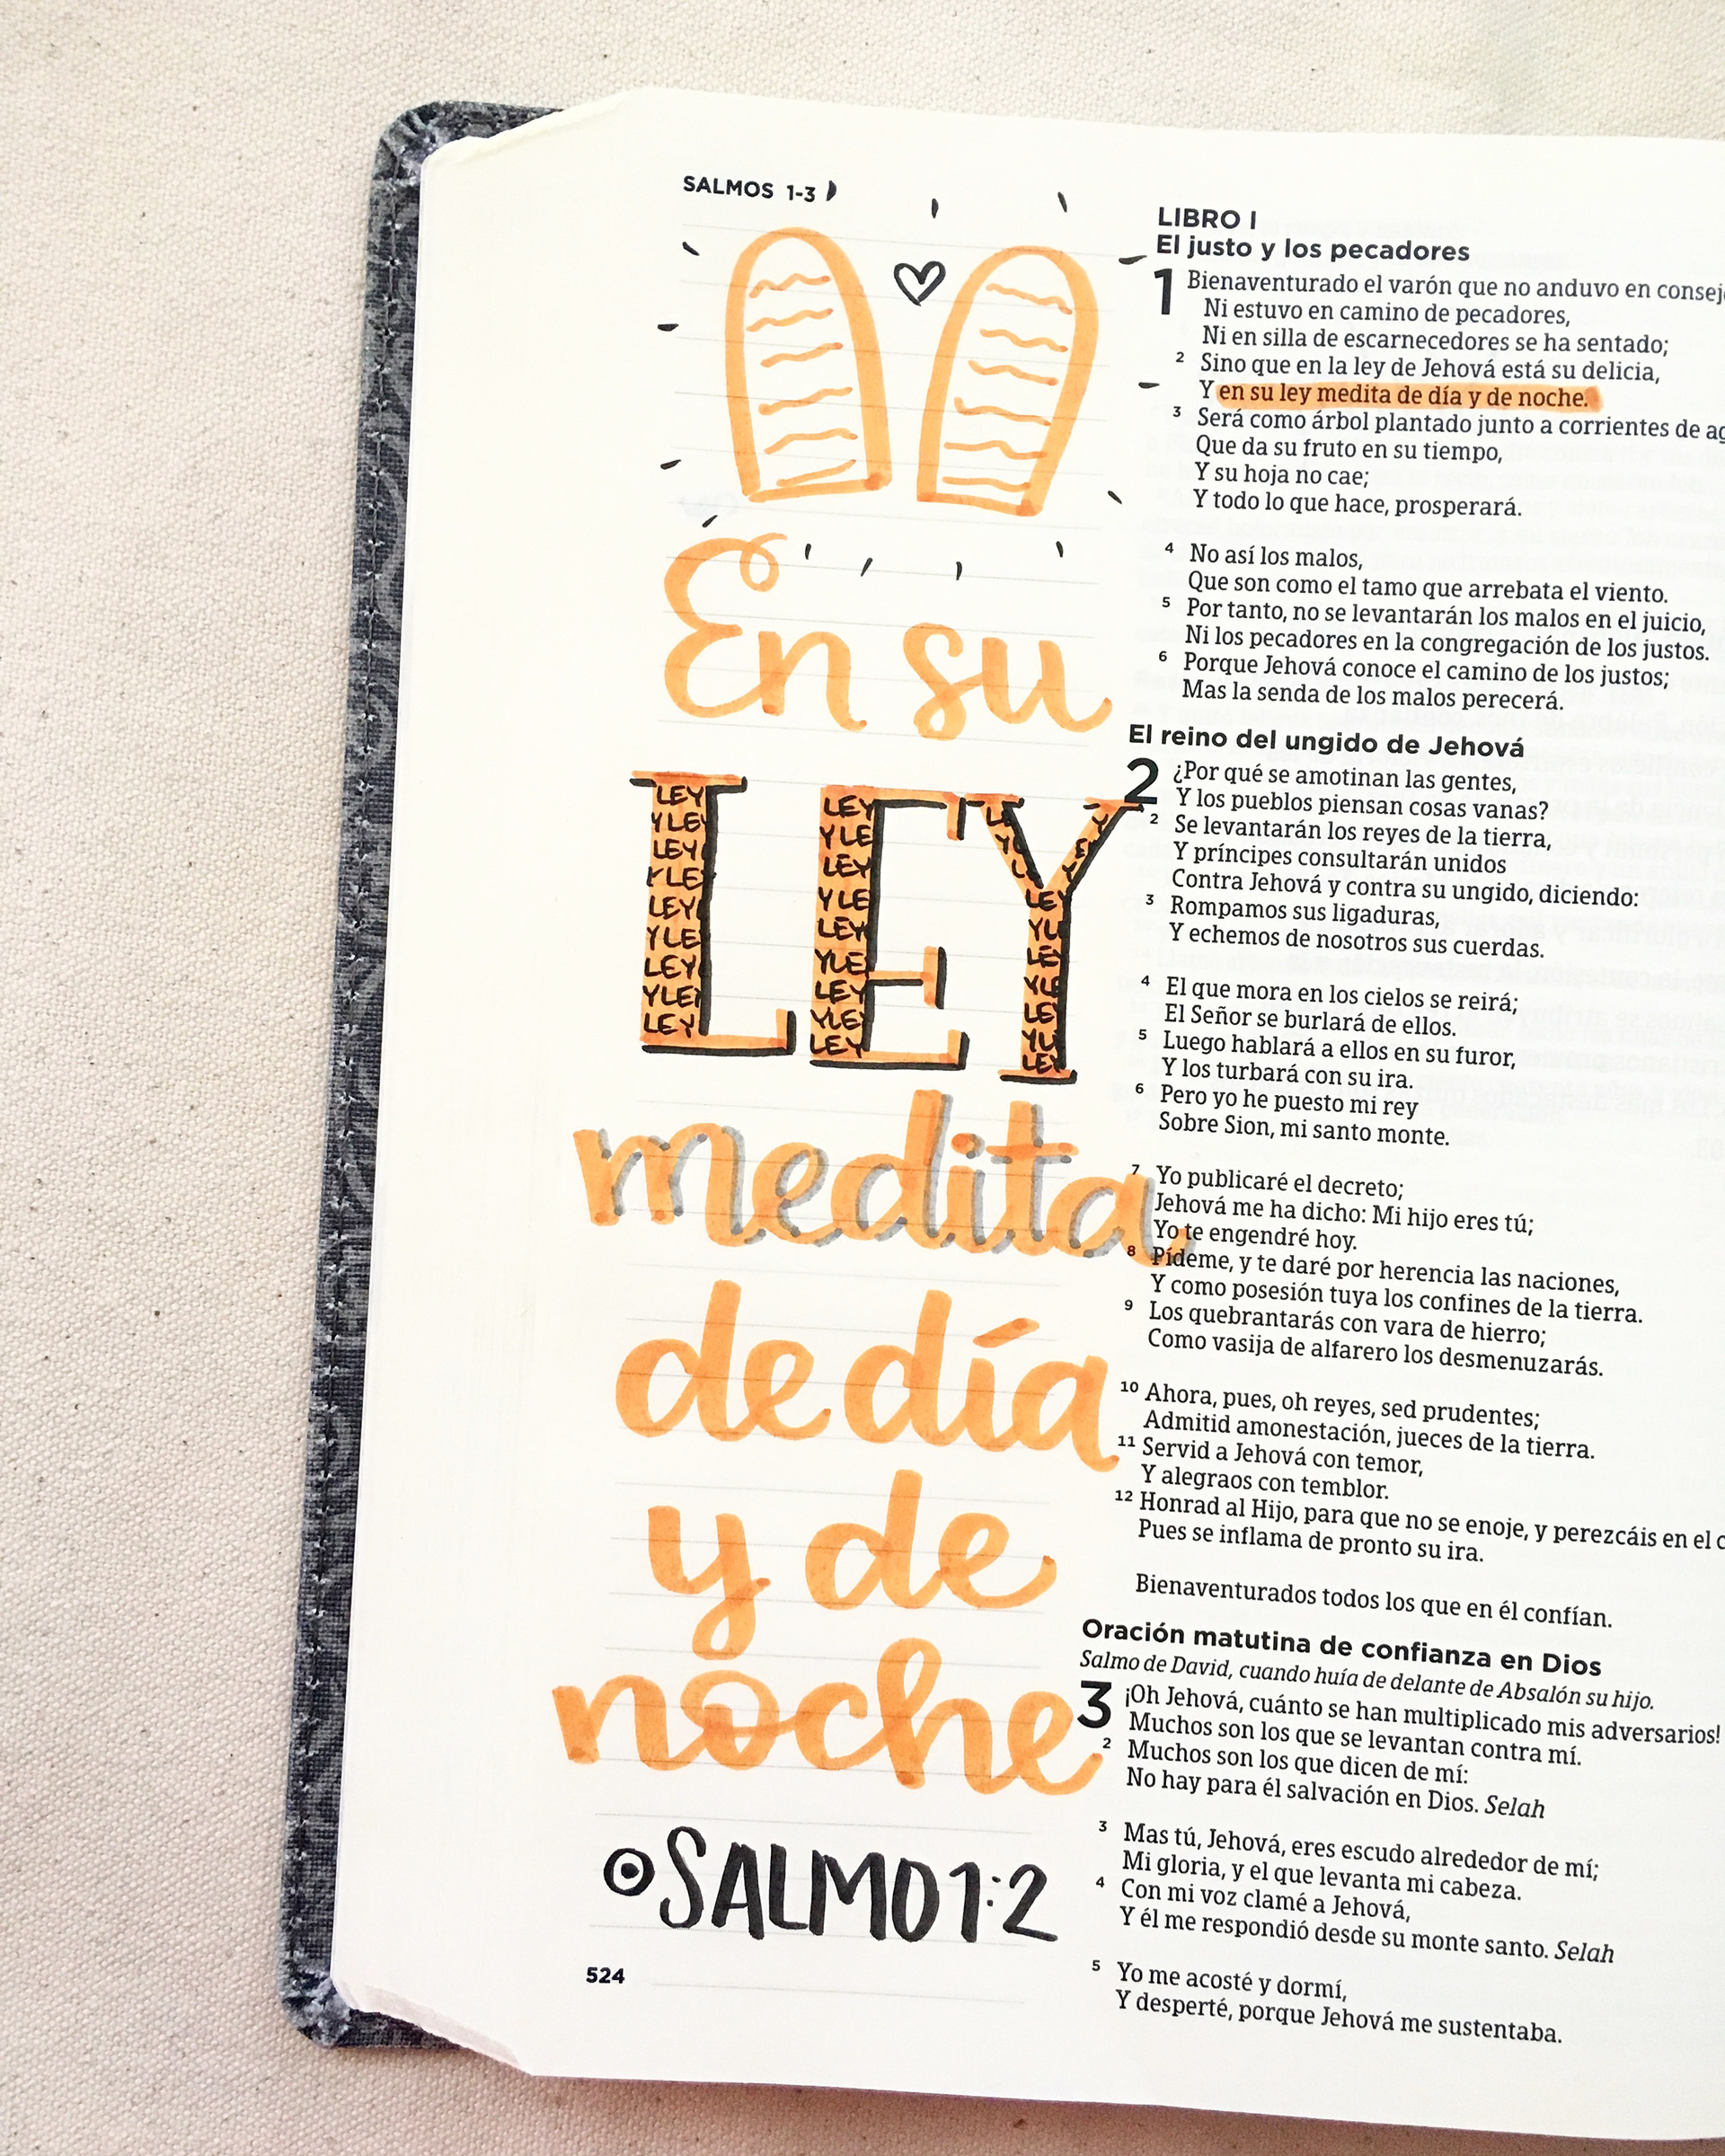 SALMOS 1-3
En su
LEY
LEY
YLE
LEY
YLE
LEY
YLE
LEY
YLEY
LEY
LEY
YLE
LEY
YLE
LEY
YLE
LEY
YLEY
LEY
LEY
LEY
LEY
LEY
medita
de día
y de
noche
SALMO 1:2
524
LIBRO I
El justo y los pecadores
1 Bienaventurado el varón que no anduvo en
Ni estuvo en camino de pecadores,
Ni en silla de escarnecedores se ha sentado;
2 Sino que en la ley de Jehová está su delicia,
Y en su ley medita de día y de noche.
3 Será como árbol plantado junto a corrientes de
Que da su fruto en su tiempo,
Y su hoja no cae;
Y todo lo que hace, prosperará.
4 No así los malos,
Que son como el tamo que arrebata el viento.
5 Por tanto, no se levantarán los malos en el juicio,
Ni los pecadores en la congregación de los justos.
6 Porque Jehová conoce el camino de los justos;
Mas la senda de los malos perecerá.
El reino del ungido de Jehová
2 ¿Por qué se amotinan las gentes,
Y los pueblos piensan cosas vanas?
2 Se levantarán los reyes de la tierra,
Y príncipes consultarán unidos
Contra Jehová y contra su ungido, diciendo:
3 Rompamos sus ligaduras,
Y echemos de nosotros sus cuerdas.
4 El que mora en los cielos se reirá;
El Señor se burlará de ellos.
5 Luego hablará a ellos en su furor,
Y los turbará con su ira.
6 Pero yo he puesto mi rey
Sobre Sion, mi santo monte.
7 Yo publicaré el decreto;
Jehová me ha dicho: Mi hijo eres tú;
Yo te engendré hoy.
8 Pídeme, y te daré por herencia las naciones,
Y como posesión tuya los confines de la tierra.
9 Los quebrantarás con vara de hierro;
Como vasija de alfarero los desmenuzarás.
10 Ahora, pues, oh reyes, sed prudentes;
Admitid amonestación, jueces de la tierra.
11 Servid a Jehová con temor,
Y alegraos con temblor.
12 Honrad al Hijo, para que no se enoje, y perezcáis en el
Pues se inflama de pronto su ira.
Bienaventurados todos los que en él confían.
Oración matutina de confianza en Dios
Salmo de David, cuando huía de delante de Absalón su hijo.
3 ¡Oh Jehová, cuánto se han multiplicado mis adversarios!
Muchos son los que se levantan contra mí.
2 Muchos son los que dicen de mí:
No hay para él salvación en Dios. Selah
3 Mas tú, Jehová, eres escudo alrededor de mí;
Mi gloria, y el que levanta mi cabeza.
4 Con mi voz clamé a Jehová,
Y él me respondió desde su monte santo. Selah
5 Yo me acosté y dormí,
Y desperté, porque Jehová me sustentaba.